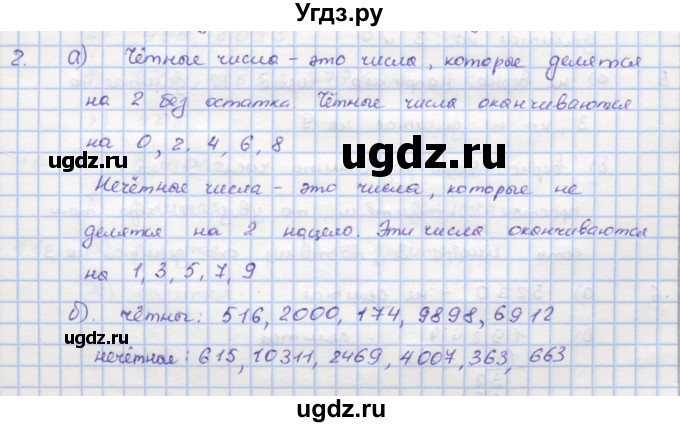 Угдз.ру
2. а) Чётные числа - это числа, которые делятся
на 2 без остатка. Чётные числа оканчиваются
на 0, 2, 4, 6, 8
ugdz.ru
ugdz.ru
ugdz.ru
Нечётные числа - это числа, которые не
делятся на 2 нацело. Эти числа оканчиваются
на 1, 3, 5, 7, 9
б). чётные: 516, 2000, 174, 9898, 6912
ugdz.ru
нечётное: 615, 10311, 2469, 4007, 363, 663
ugdz.ru
ugdz.ru